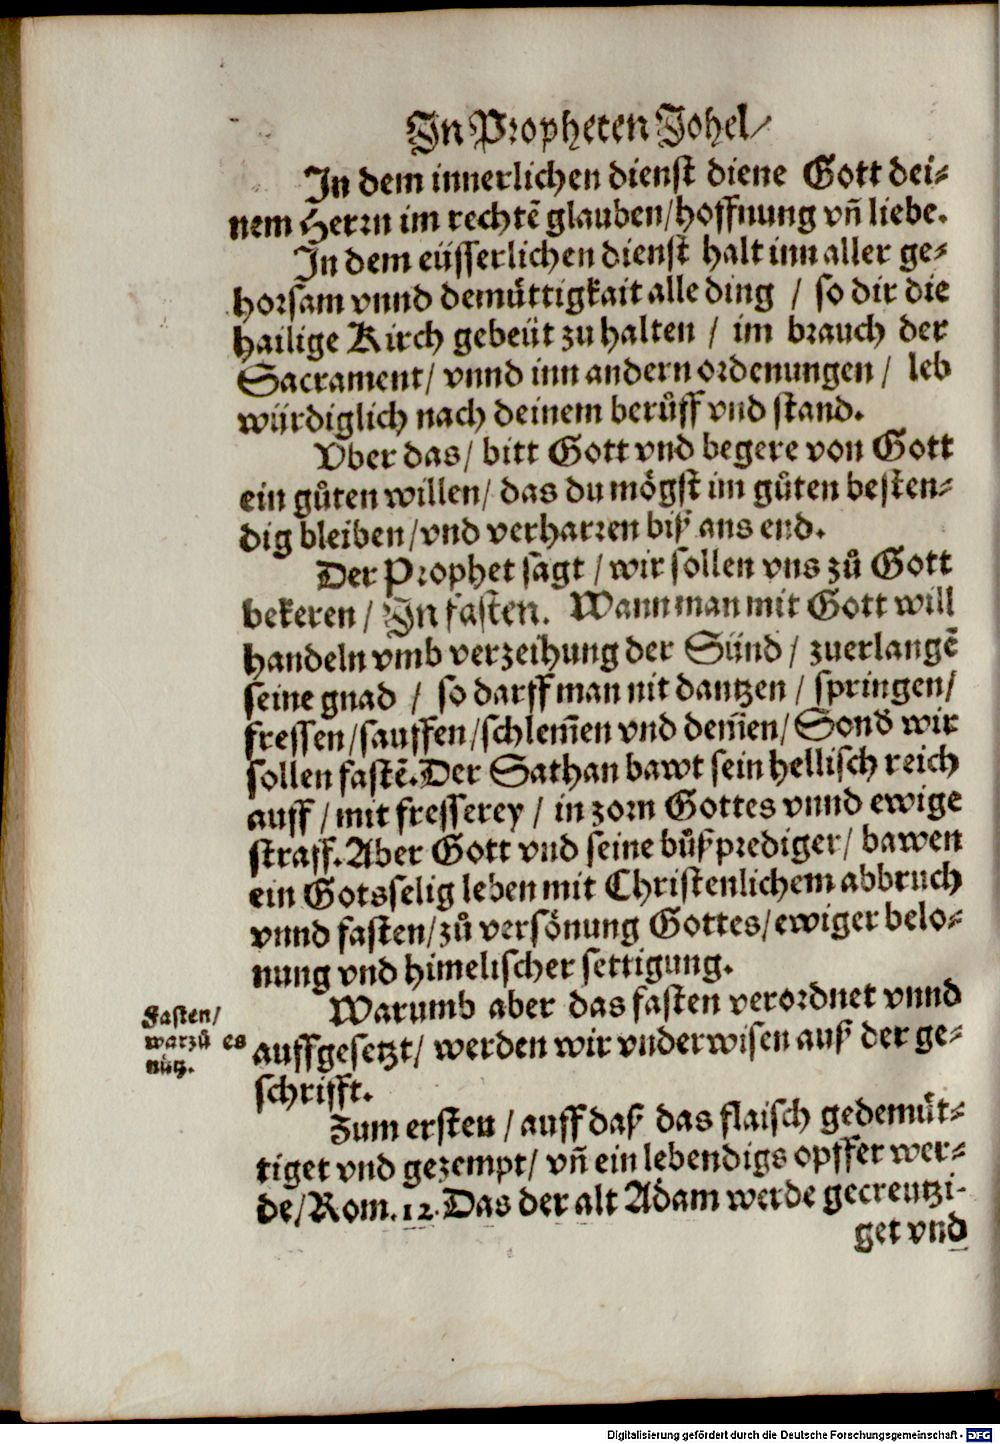 In Propheten Johel/
In dem innerlichen dienst diene Gott dei-
nem Herrn im rechtẽ glauben/hoffnung vñ liebe.
In dem eüsserlichen dienst halt inn aller ge-
horsam vnnd demuͤttigkait alle ding / so dir die
hailige Kirch gebeüt zu halten / im brauch der
Sacrament/ vnnd inn andern ordenungen/ leb
würdiglich nach deinem beruͤff vnd stand.
Vber das/ bitt Gott vnd begere von Gott
ein guͤten willen/ das du moͤgst im guͤten besten-
dig bleiben/vnd verharren biß ans end.
Der Prophet sagt / wir sollen vns zů Gott
bekeren / In fasten. Wann man mit Gott will
handeln vmb verzeihung der Sünd / zuerlangẽ
seine gnad / so darff man nit dantzen / springen/
fressen/sauffen/schlem̃en vnd dem̃en/ Sond̃ wir
sollen fastẽ. Der Sathan bawt sein hellisch reich
auff / mit fresserey / in zorn Gottes vnnd ewige
straff. Aber Gott vnd seine bůßprediger/ bawen
ein Gotsselig leben mit Christenlichem abbruch
vnnd fasten/zů versoͤnung Gottes/ewiger belo-
nung vnd himelischer settigung.
Warumb aber das fasten verordnet vnnd
Fasten/
warzů es
nütz.
auffgesetzt/ werden wir vnderwisen auß der ge-
schrifft.
Zum ersten / auff daß das flaisch gedemuͤt-
tiget vnd gezempt/ vñ ein lebendigs opffer wer-
de/Rom. 12. Das der alt Adam werde gecreutzi-
get vnd
Digitalisierung gefördert durch die Deutsche Forschungsgemeinschaft - DFG